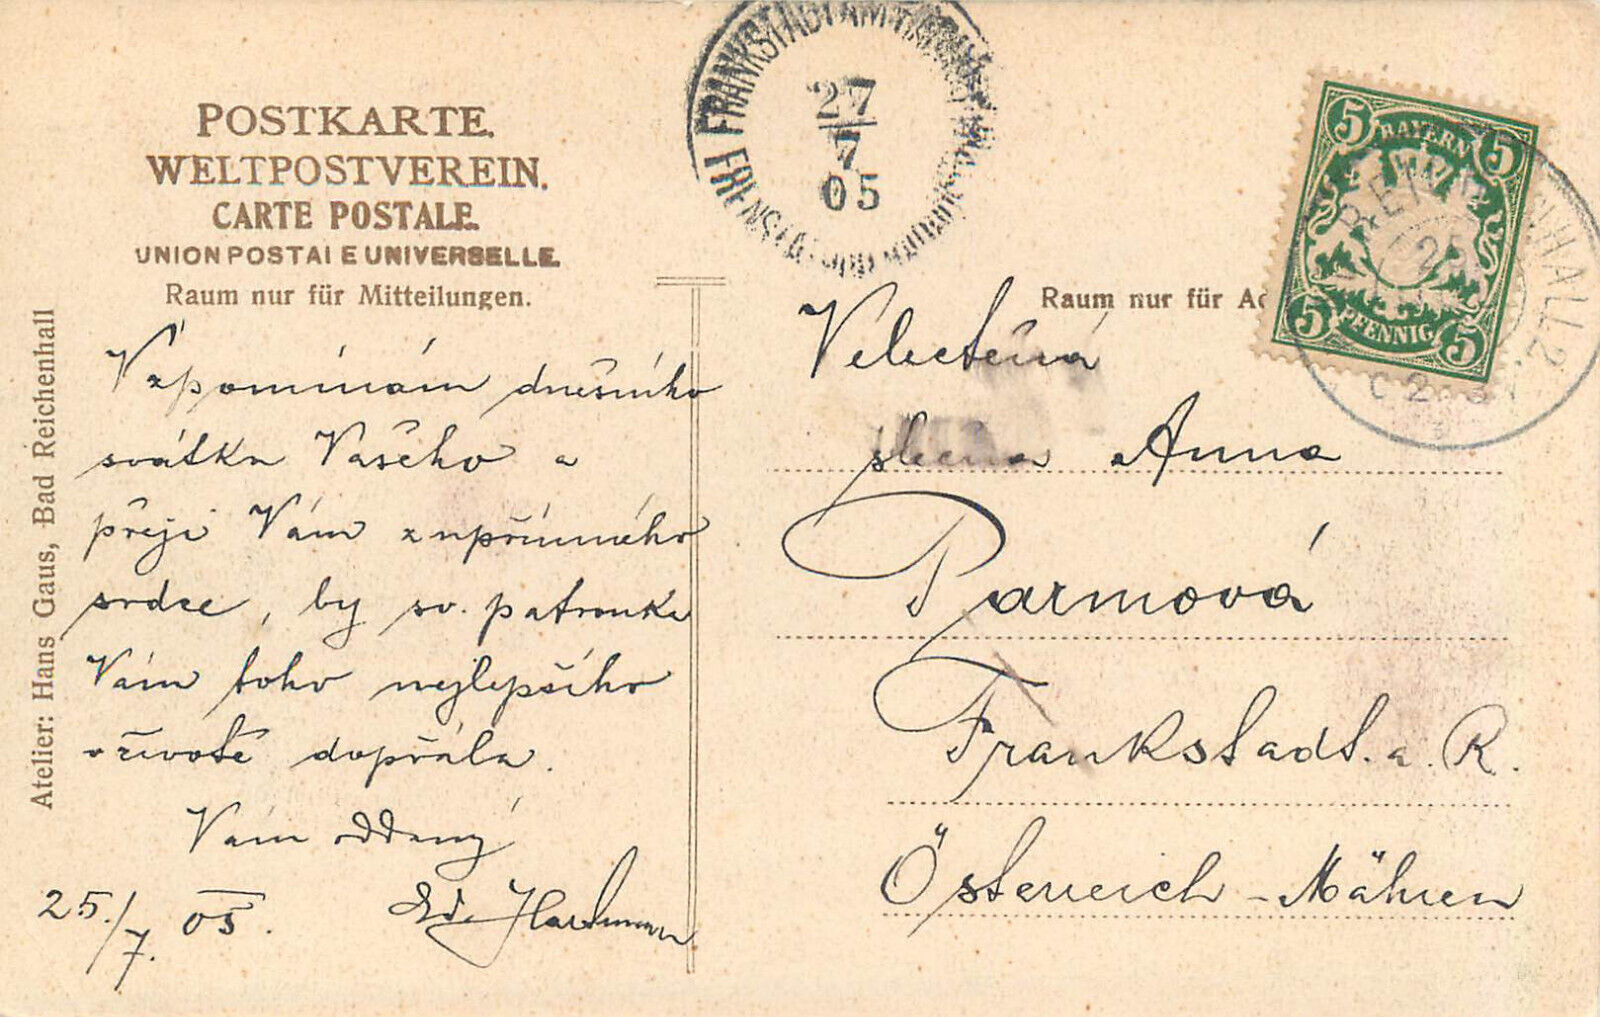 POSTKARTE.
WELTPOSTVEREIN.
CARTE POSTALE.
UNION POSTALE UNIVERSELLE.
Raum nur für Mitteilungen.
Atelier: Hans Gaus, Bad Reichenhall
Vzpomínám dnešního
svátku Vašeho a
přeji Vám z upřímného
srdce, by sv. patronka
Vám toho nejlepšího
v životě dopřála.
Vám oddaný
25./7. 05. Ed. Hartmann
FRANKSTADT AM RADHOST
27
7
05
FRENSTAT POD RADHOSTEM
Raum nur für
5 BAYERN 5
5 PFENNIG 5
REICHENHALL 2
25
Velectěná
slečna Anna
Parmová
Frankstadt. a. R.
Österreich - Mähren